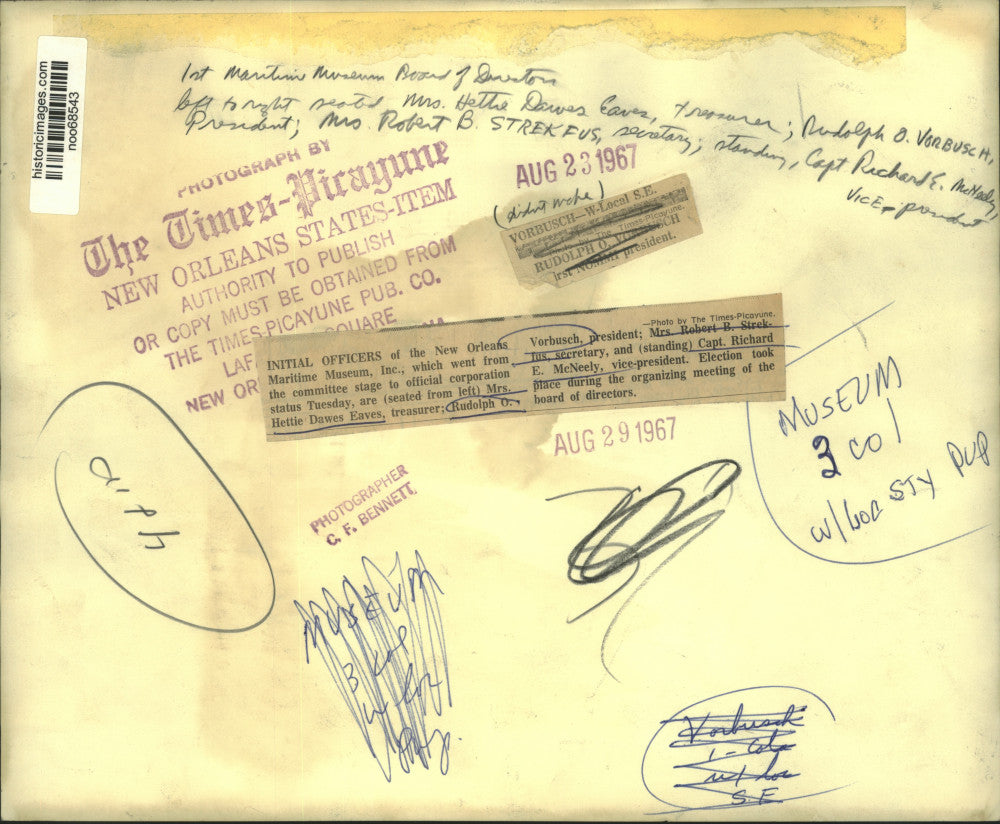 historicimages.com
noo68543
1st Maritime Museum Board of Directors
left to right seated Mrs. Hettie Dawes Eaves, treasurer; Rudolph O. VORBUSCH,
President; Mrs. Robert B. STREKFUS, secretary; standing, Capt Richard E. McNeely,
VICE-president
PHOTOGRAPH BY
The Times-Picayune
NEW ORLEANS STATES-ITEM
AUTHORITY TO PUBLISH
OR COPY MUST BE OBTAINED FROM
THE TIMES-PICAYUNE PUB. CO.
LAF SQUARE
NEW OR NA
AUG 23 1967
(didnt make)
VORBUSCH—W-Local S.E.
Photo by The Times-Picayune.
RUDOLPH O. VORBUSCH
irst NOMMI president.
INITIAL OFFICERS of the New Orleans
Maritime Museum, Inc., which went from
the committee stage to official corporation
status Tuesday, are (seated from left) Mrs.
Hettie Dawes Eaves, treasurer; Rudolph O.
—Photo by The Times-Picayune.
Vorbusch, president; Mrs. Robert B. Strek-
fus, secretary, and (standing) Capt. Richard
E. McNeely, vice-president. Election took
place during the organizing meeting of the
board of directors.
AUG 29 1967
MUSEUM
3 col
w/loc STY PUP
PHOTOGRAPHER
C. F. BENNETT
MUSEUM
3 col
w loc
Vorbusch
1-Col
w/ loc
S.E.